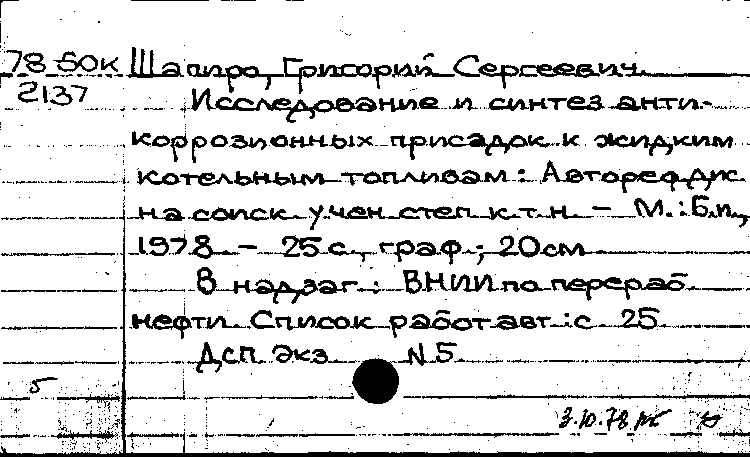 78-50к Шапиро, Григорий Сергеевич.
2137 Исследование и синтез анти-
коррозионных присадок к жидким
котельным топливам: Автореф. дис.
на соиск. учен. степ. к.т.н. - М.: Б.и.,
1978. - 25 с., граф.; 20 см
В надзаг.: ВНИИ по перераб.
нефти. Список работ авт.: с. 25
Дсп. Экз. N 5
5
3.10.78